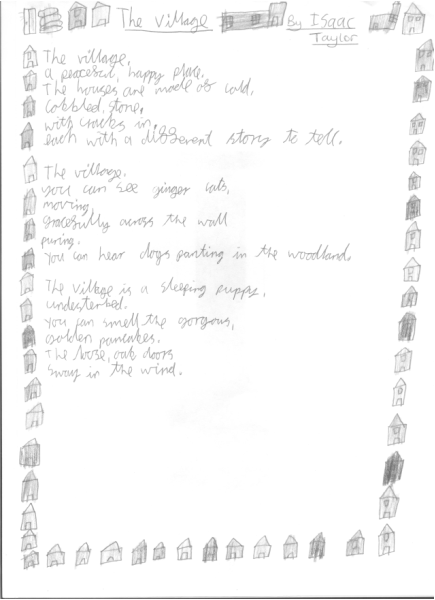 The Village
By Isaac
Taylor
The village.
a peaceful, happy place.
The houses are made of cold,
cobbled, stone,
with cracks in,
each with a different story to tell.
The village.
you can see ginger cats,
moving,
gracefully across the wall
puring.
you can hear dogs panting in the woodlands
The village is a sleeping puppy,
undesterbed.
you can smell the gorgous,
golden pancakes.
The loose, oak doors
sway in the wind.